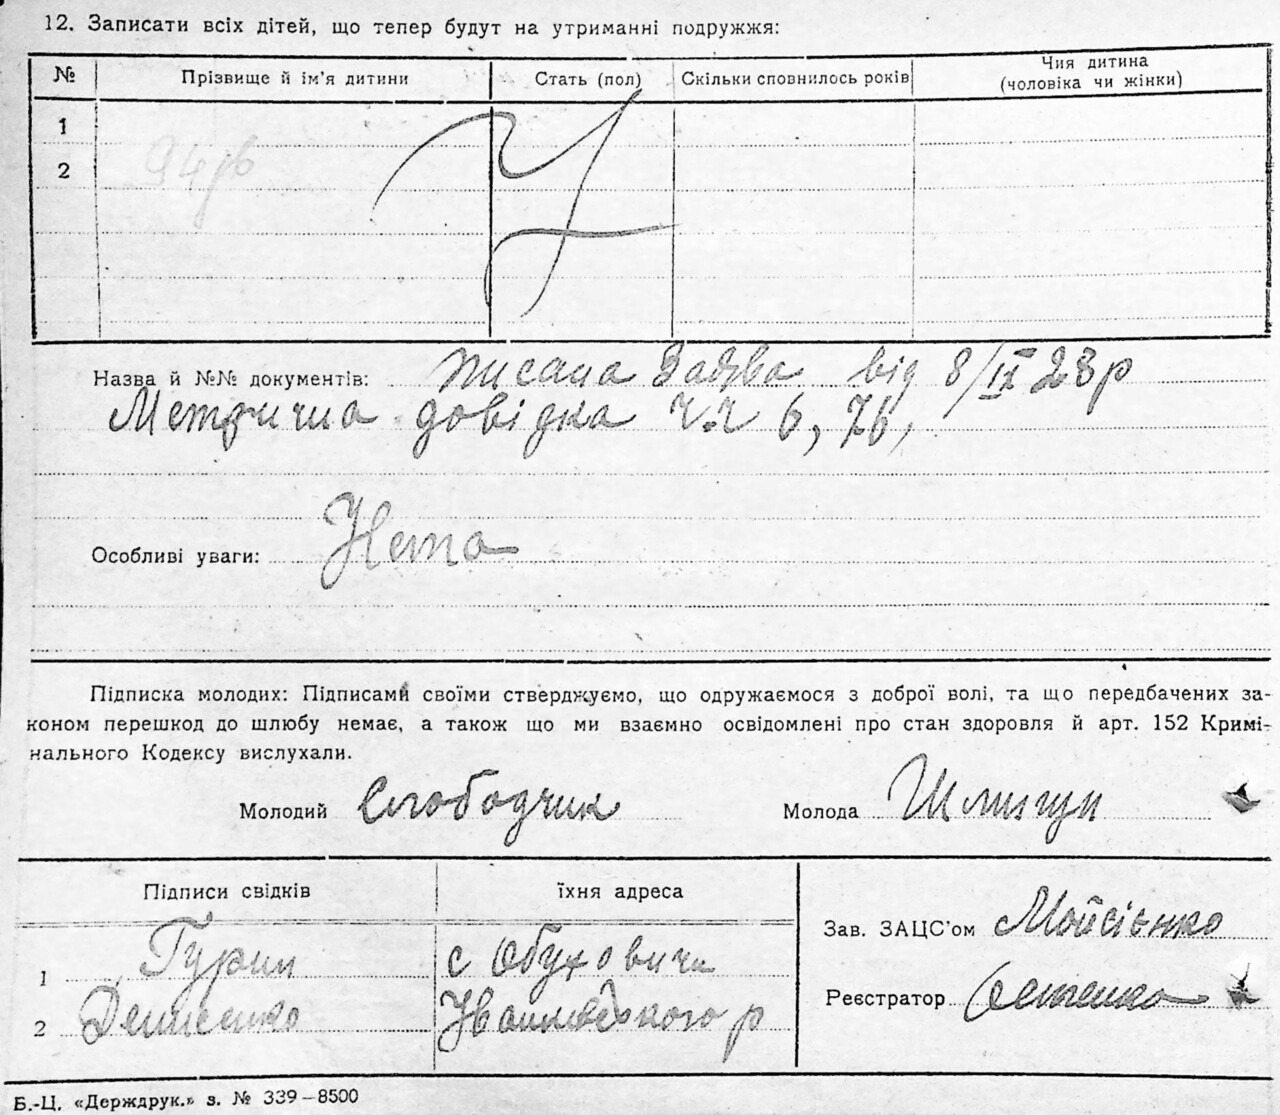 12. Записати всіх дітей, що тепер будут на утриманні подружжя:
№ Прізвище й ім'я дитини Стать (пол) Скільки сповнилось років Чия дитина (чоловіка чи жінки)
1
2
Назва й №№ документів: писана заява від 8/IX 28 р
Метрична довідка ч.ч 6, 76,
Особливі уваги: Нема
Підписка молодих: Підписами своїми стверджуємо, що одружаємося з доброї волі, та що передбачених за-
коном перешкод до шлюбу немає, а також що ми взаємно освідомлені про стан здоровля й арт. 152 Кримі-
нального Кодексу вислухали.
Молодий Слободчик Молода
Підписи свідків їхня адреса
1 Гурин с Обуховичи
2 Денисенко Іванківського р
Зав. ЗАЦС'ом Мойсієнко
Реєстратор
Б.-Ц. «Держдрук.» з. № 339–8500